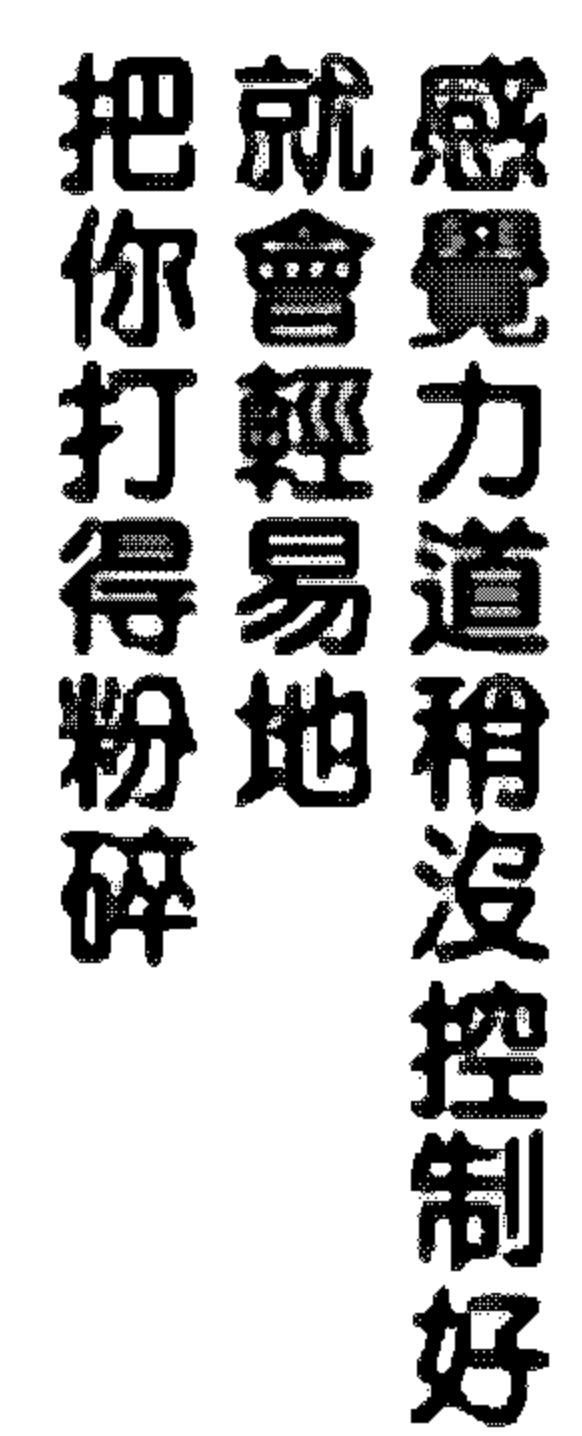 感覺力道稍沒控制好
就會輕易地
把你打得粉碎